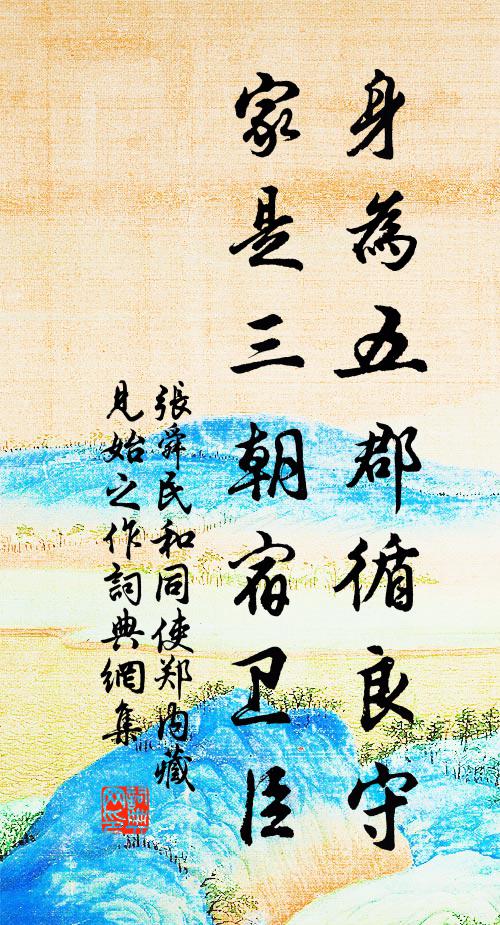 身為五郡循良守
家是三朝宿卫臣
張舜民和同使郑内藏
見始之作詞典網集